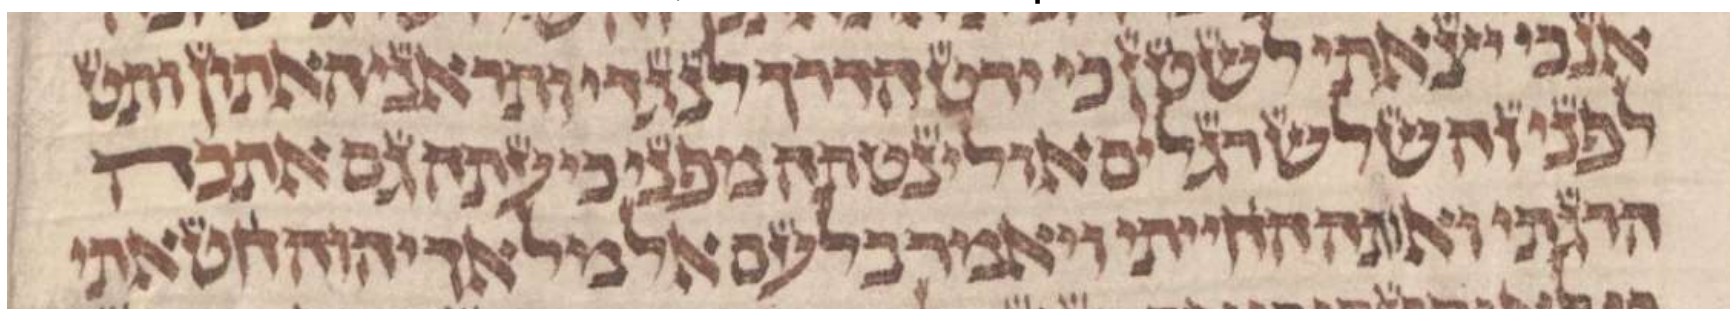 אנכי יצאתי לשטן כי ירט הדרך לנגדי ותראני האתון ותט
לפני זה שלש רגלים אולי נטתה מפני כי עתה גם אתכה
הרגתי ואותה החייתי ויאמר בלעם אל מלאך יהוה חטאתי